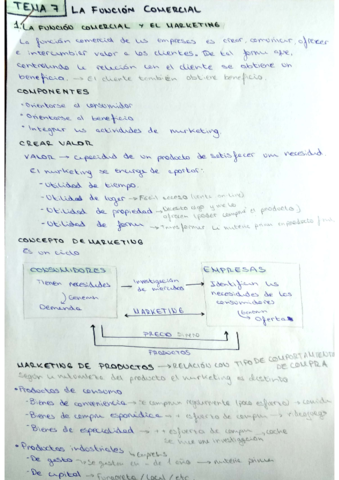 TEMA 7 LA FUNCIÓN COMERCIAL
1. LA FUNCIÓN COMERCIAL Y EL MARKETING
La función comercial de las empresas es crear, comunicar, ofrecer
e intercambiar valor a los clientes. De tal forma que,
controlando la relación con el cliente se obtiene un
beneficio. → El cliente también obtiene beneficio.
COMPONENTES
• Orientarse al consumidor
• Orientarse al beneficio
• Integrar las actividades de marketing.
CREAR VALOR
VALOR → capacidad de un producto de satisfacer una necesidad
El marketing se encarga de aportar:
- Utilidad de tiempo
- Utilidad de lugar →
- Utilidad de propiedad → algo y que lo
ofrezcan (poder comprar el producto)
- Utilidad de forma → Transformar la materia prima en producto
CONCEPTO DE MARKETING
Es un ciclo
CONSUMIDORES
Tienen necesidades
Generan
Demanda
Investigación de mercados
MARKETING
EMPRESAS
Identifican las
necesidades de los
consumidores
Generan
Oferta
PRECIO
PRODUCTOS
MARKETING DE PRODUCTOS → RELACIÓN CON TIPO DE COMPORTAMIENTO
DE COMPRA
Según la naturaleza del producto el marketing es distinto
• Productos de consumo
- Bienes de conveniencia → se compran → comida
- Bienes de compra esporádica → + esfuerzo de compra →
- Bienes de especialidad → ++ esfuerzo de compra, coche
Se hace una investigación
• Productos industriales
- De gasto → Se gastan en - de 1 año → materia prima
- De capital → / Local / etc